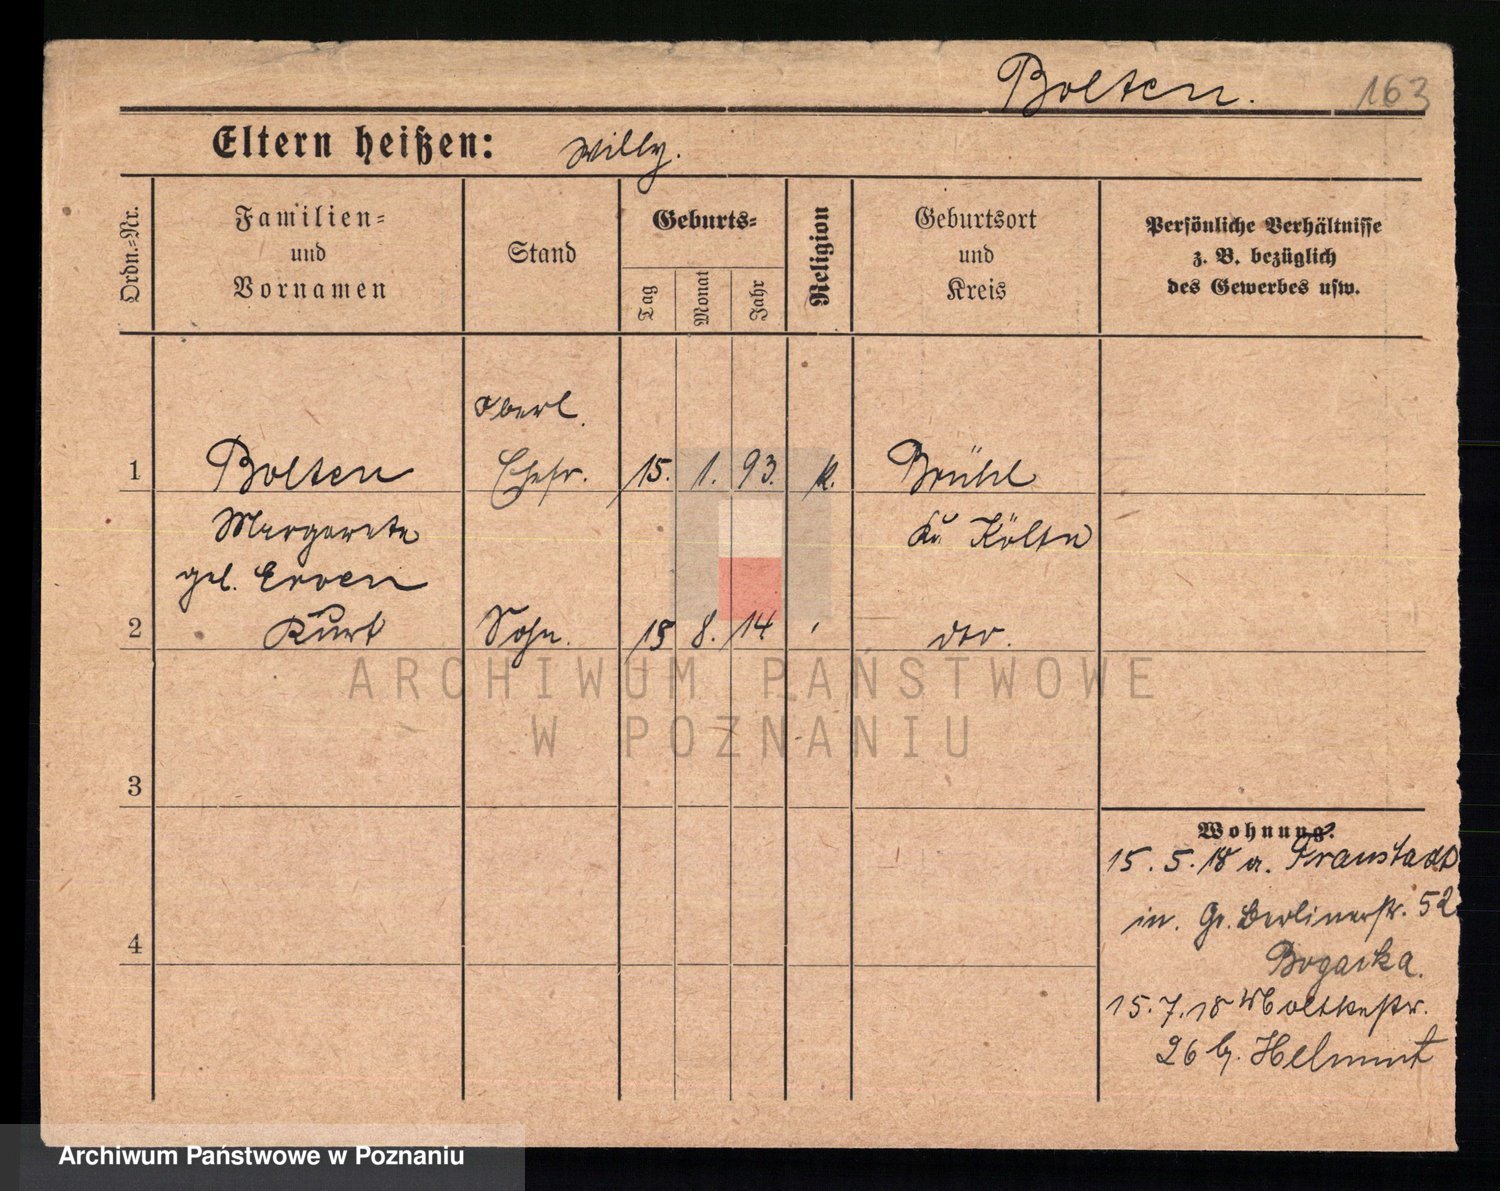 Bolten. 163
Eltern heißen: Willy.
Ordn.=Nr.
Familien=
und
Vornamen
Stand
Geburts=
Tag
Monat
Jahr
Religion
Geburtsort
und
Kreis
Persönliche Verhältnisse
z. B. bezüglich
des Gewerbes usw.
Oberl.
1 Bolten Ehefr. 15. 1. 93. k. Brühl
Margarete Kr. Kölln
geb. Erven
2 Kurt Sohn. 15 8. 14 dto.
ARCHIWUM PAŃSTWOWE
W POZNANIU
3
Wohnung.
15.5.18 a. Fraustadt
in. Gr. Berlinerstr. 52
4
Bogacka.
15.7.18 Moltkestr.
26 b. Helmut
Archiwum Państwowe w Poznaniu